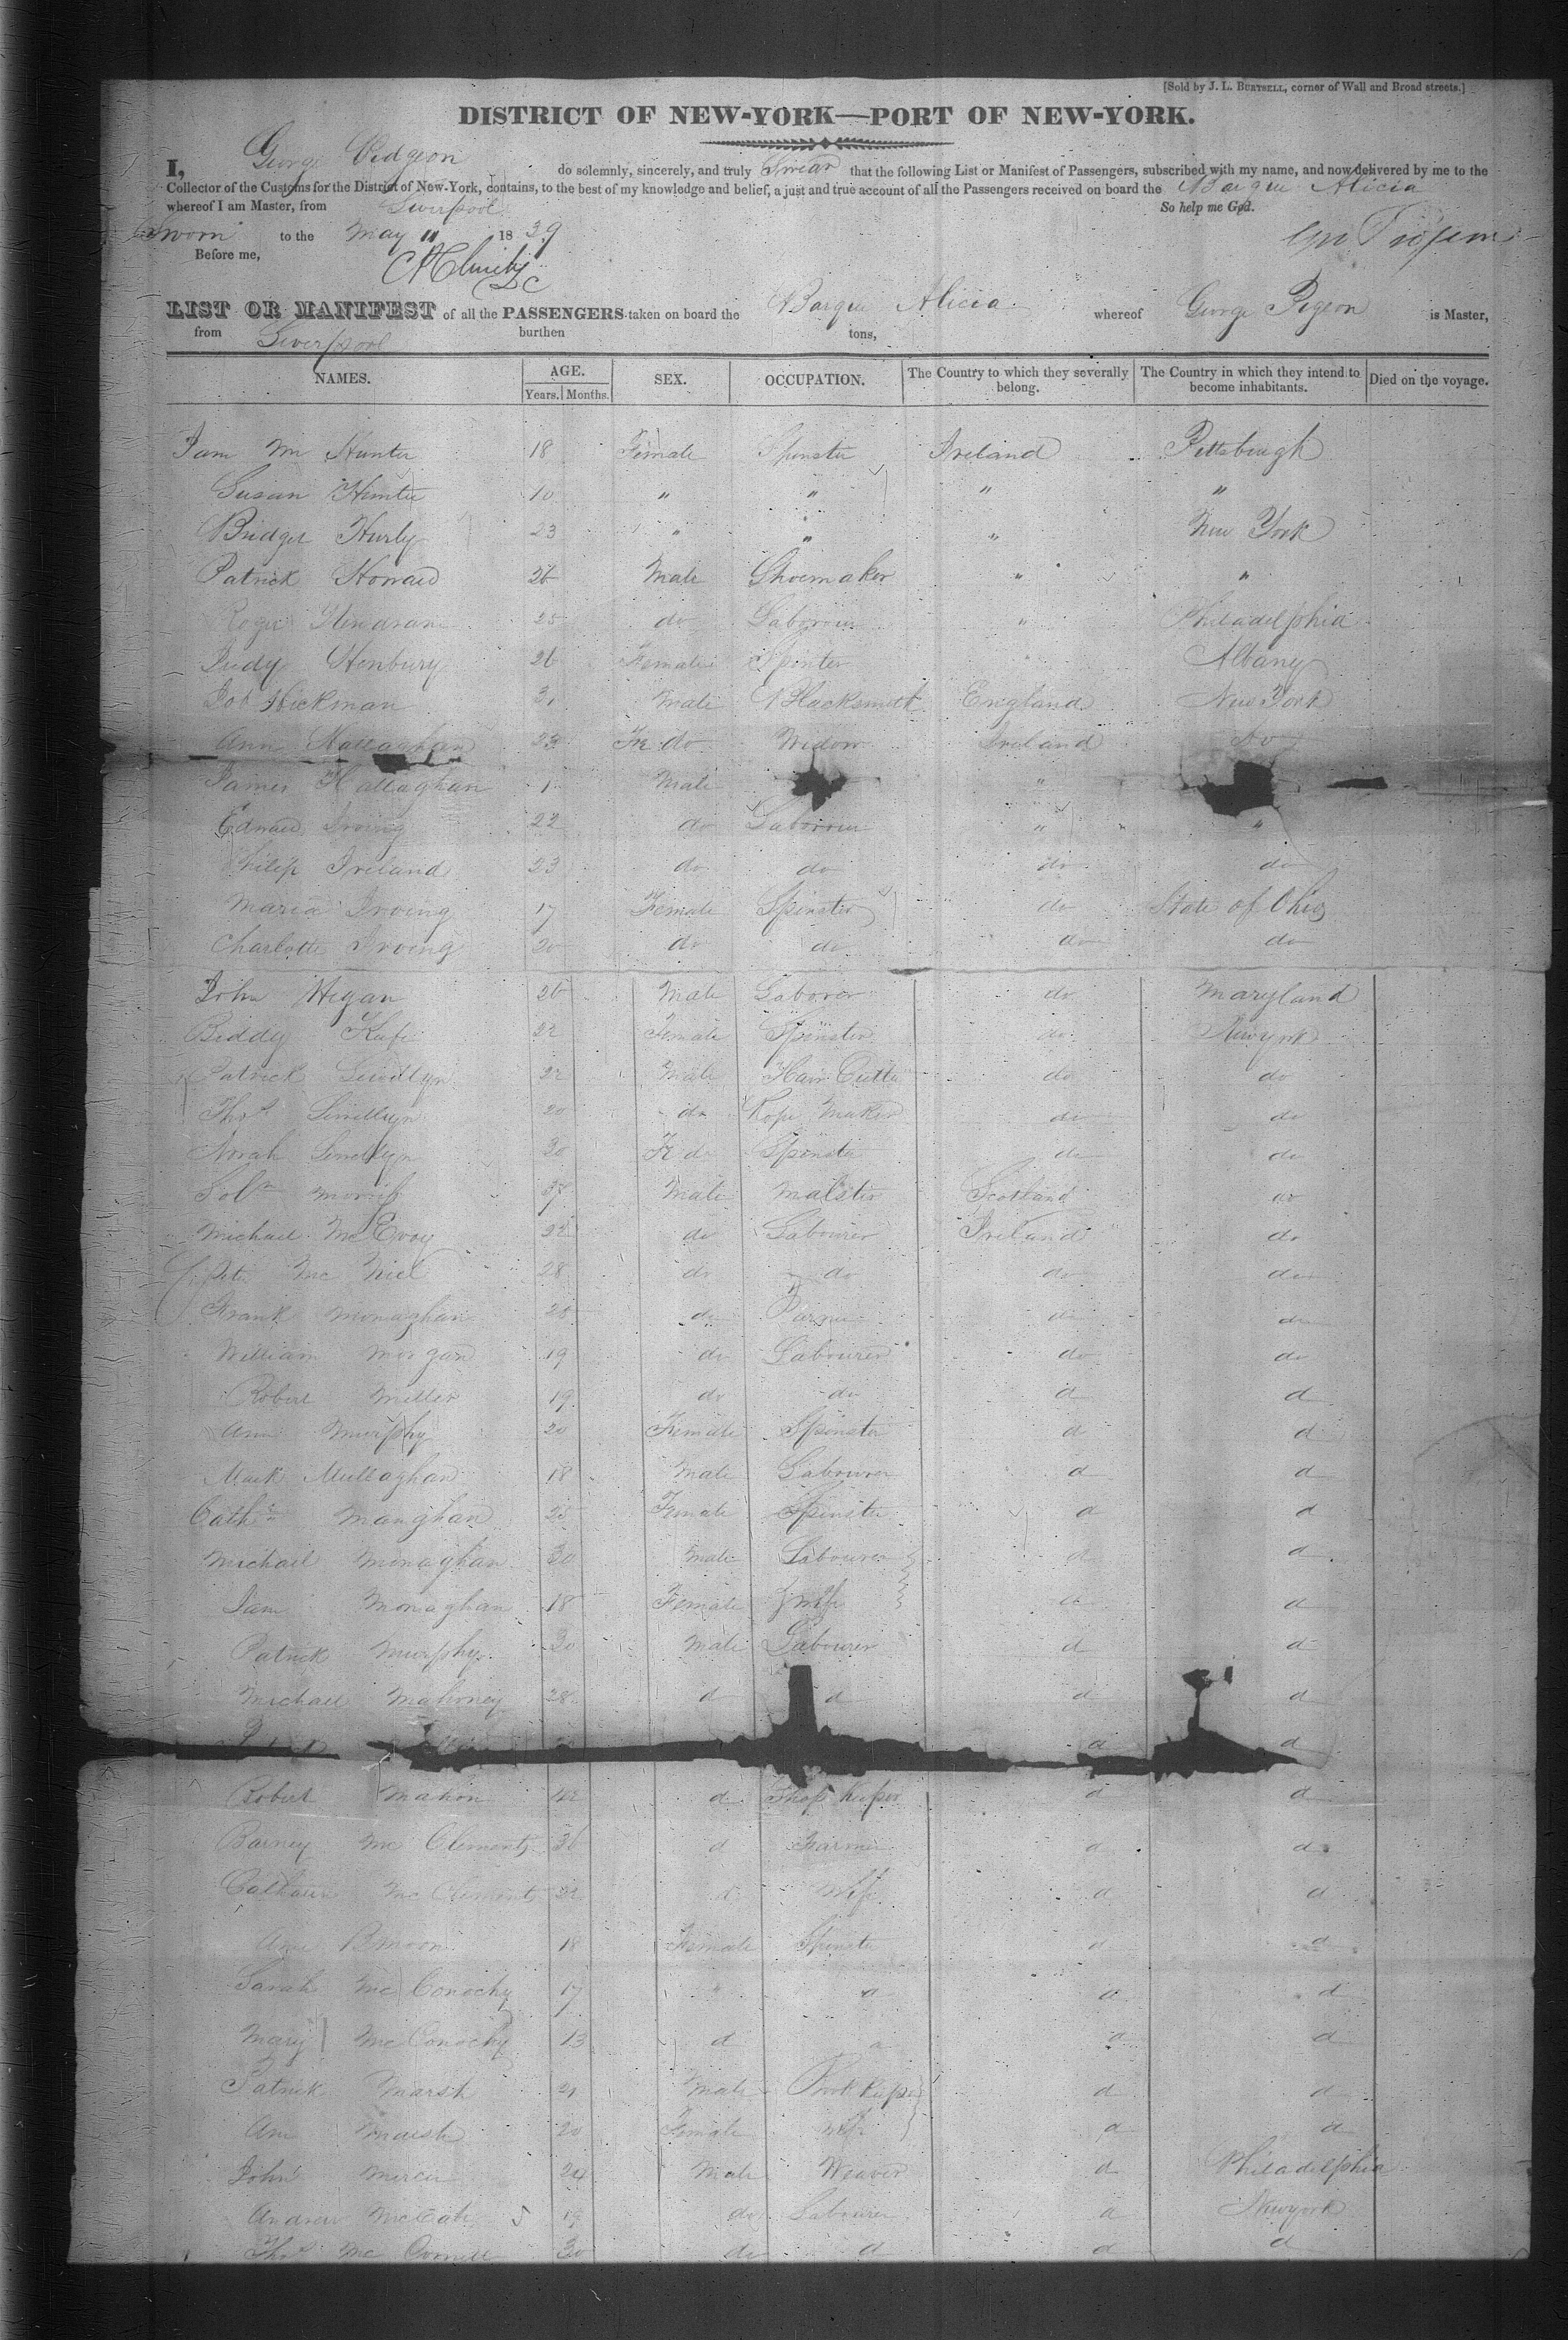 [Sold by J. L. BURTSELL, corner of Wall and Broad streets.]
DISTRICT OF NEW-YORK—PORT OF NEW-YORK.
I, George Pidgeon do solemnly, sincerely, and truly Swear that the following List or Manifest of Passengers, subscribed with my name, and now delivered by me to the
Collector of the Customs for the District of New-York, contains, to the best of my knowledge and belief, a just and true account of all the Passengers received on board the Barque Alicia
whereof I am Master, from Liverpool So help me God.
Sworn to the May 11 1839
Before me,
LIST OR MANIFEST of all the PASSENGERS taken on board the Barque Alicia whereof George Pigeon is Master,
from Liverpool burthen tons,
NAMES. AGE. SEX. OCCUPATION. The Country to which they severally belong. The Country in which they intend to become inhabitants. Died on the voyage.
Years. Months.
Hunter 18 Female Spinster Ireland Pittsburgh
Susan Hunter 10 " " " "
Bridget Hurly 23 " " " New York
Patrick Howard 26 Male Shoemaker " "
Roger 25 do Labourer " Philadelphia
Judy Henbury 26 Female Spinster Albany
Job Hickman Male Blacksmith England New York
Ann Hallaghan 23 Fe do Widow Ireland do
James Hallaghan 1 Male "
Edward Irving 22 do Labourer " "
Philip Ireland 23 do do do do
Maria Irving 17 Female Spinster do State of Ohio
Charlotte Irving 20 do do do do
John Hegan 26 Male Laborer do Maryland
Biddy Kufe 22 Female Spinster do New york
Patrick Lewellyn 22 Male Hair Cutter do do
Thos Lewellyn 20 do Rope Maker do do
Norah Lewellyn 20 Fe do Spinster do do
Morris Male Malster Scotland do
Michael McEvoy 22 do Labourer Ireland do
Peter Mc Niel 28 do do do do
Frank Monaghan 28 do do do
William Morgan 19 do Labourer do do
Robert Miller 19 do do d d
Ann Murphy 20 Female Spinster d d
Mark Mullaghan 18 Male Labourer d d
Cathn Manghan 25 Female Spinster d d
Michael Monaghan 30 Male Labourer d d
Monaghan 18 Female wife d d
Patrick Murphy 30 Male Labourer d d
Michael Mahoney 28 d d d d
d d
Robert Mahon 42 d Shop keeper d d
Barney Mc Clements 36 d Farmer d d
Mc Clements d Wife d d
Ann 18 Female Spinster d d
Sarah Mc Conochy 17 " d d d
Mary Mc Conochy 13 d d d d
Patrick Marsh 21 Male Book keeper d d
Ann Marsh 20 Female wife d d
John Mercer 24 Male Weaver d Philadelphia
Andrew McCabe 19 do Labourer d Newyork
Thos Mc Connell 30 do d d d